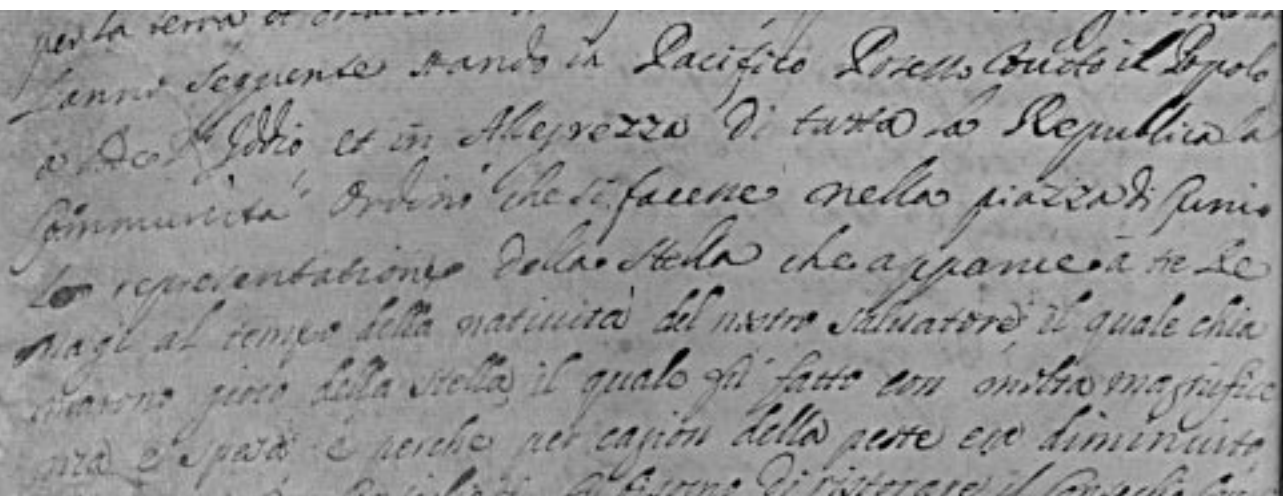 per la terra et
Lanno Seguente stando in Pacifico Posesso tucto il Popolo
Iddio et in Allegrezza di tutta la Republica la
Communità Ordinò che si facesse nella piazza di
la representatione della stella che apparue a tre Re
magi al tempo della natiuità del nostro Saluatore il quale chia
marono gioco della stella, il quale fù fatto con molta magnifice
nza e spesa e perche per cagion della peste era diminuito
di ristorare il